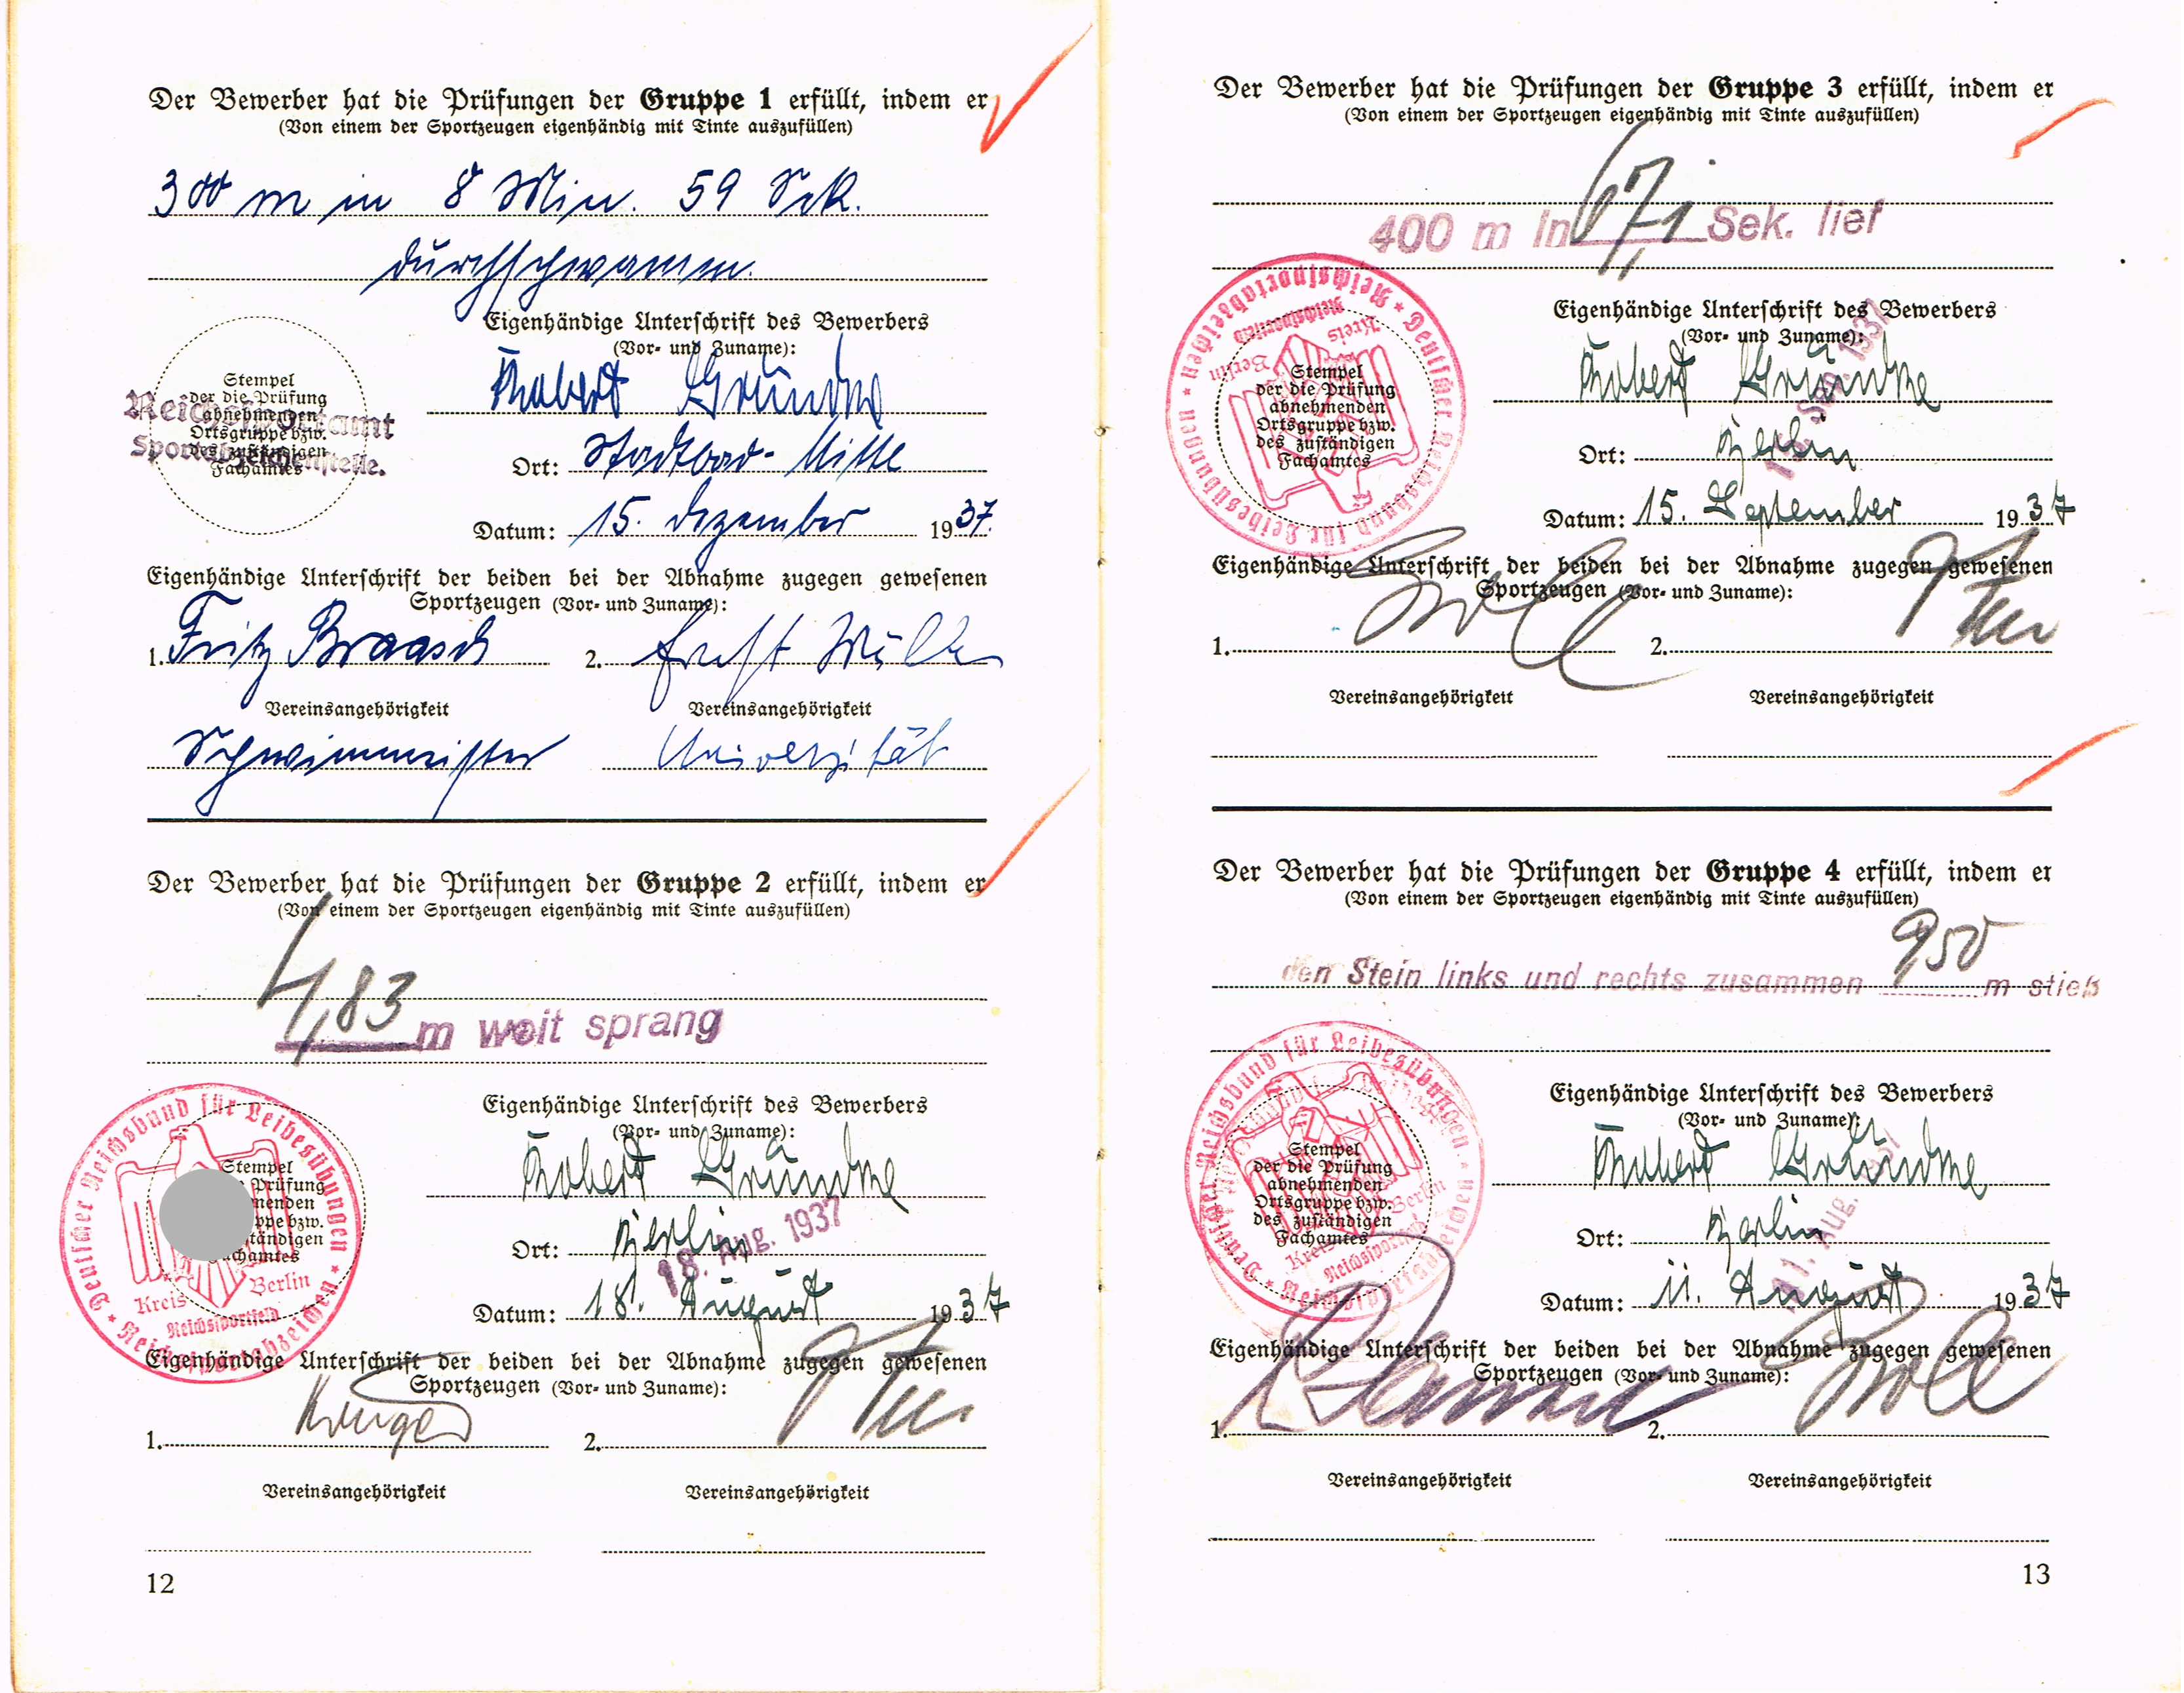 Der Bewerber hat die Prüfungen der Gruppe 1 erfüllt, indem er
(Von einem der Sportzeugen eigenhändig mit Tinte auszufüllen)
300 m in 8 Min. 59 Sek.
durchschwamm.
Eigenhändige Unterschrift des Bewerbers
(Vor- und Zuname):
Stempel
der die Prüfung
abnehmenden
Ortsgruppe bzw.
des zuständigen
Fachamtes
Reichssportamt
Sportabzeichenstelle.
Robert Gründke
Ort: Stadtbad-Mitte
Datum: 15. Dezember 1937.
Eigenhändige Unterschrift der beiden bei der Abnahme zugegen gewesenen
Sportzeugen (Vor- und Zuname):
1. Fritz Braasch 2. Ernst
Vereinsangehörigkeit Vereinsangehörigkeit
Schwimmeister Universität
Der Bewerber hat die Prüfungen der Gruppe 2 erfüllt, indem er
(Von einem der Sportzeugen eigenhändig mit Tinte auszufüllen)
4,83 m weit sprang
Deutscher Reichsbund für Leibesübungen * Reichssportabzeichen *
Kreis Berlin
Reichssportfeld
Stempel
Prüfung
menden
ppe bzw.
tändigen
achamtes
Eigenhändige Unterschrift des Bewerbers
(Vor- und Zuname):
Robert Gründke
Ort: Berlin
18. Aug. 1937
Datum: 18. August 1937
Eigenhändige Unterschrift der beiden bei der Abnahme zugegen gewesenen
Sportzeugen (Vor- und Zuname):
1. Krüger 2.
Vereinsangehörigkeit Vereinsangehörigkeit
12
Der Bewerber hat die Prüfungen der Gruppe 3 erfüllt, indem er
(Von einem der Sportzeugen eigenhändig mit Tinte auszufüllen)
400 m in 67,1 Sek. lief
Deutscher Reichsbund für Leibesübungen * Reichssportabzeichen *
Kreis Berlin
Reichssportfeld
Stempel
der die Prüfung
abnehmenden
Ortsgruppe bzw.
des zuständigen
Fachamtes
Eigenhändige Unterschrift des Bewerbers
(Vor- und Zuname):
Robert Gründke
Ort: Berlin
Sep. 1937
Datum: 15. September 1937
Eigenhändige Unterschrift der beiden bei der Abnahme zugegen gewesenen
Sportzeugen (Vor- und Zuname):
1. 2.
Vereinsangehörigkeit Vereinsangehörigkeit
Der Bewerber hat die Prüfungen der Gruppe 4 erfüllt, indem er
(Von einem der Sportzeugen eigenhändig mit Tinte auszufüllen)
den Stein links und rechts zusammen 950 m stieß
Deutscher Reichsbund für Leibesübungen * Reichssportabzeichen *
Kreis Berlin
Reichssportfeld
Stempel
der die Prüfung
abnehmenden
Ortsgruppe bzw.
des zuständigen
Fachamtes
Eigenhändige Unterschrift des Bewerbers
(Vor- und Zuname):
Robert Gründke
Ort: Berlin
11. Aug. 1937
Datum: 11. August 1937
Eigenhändige Unterschrift der beiden bei der Abnahme zugegen gewesenen
Sportzeugen (Vor- und Zuname):
1. 2.
Vereinsangehörigkeit Vereinsangehörigkeit
13